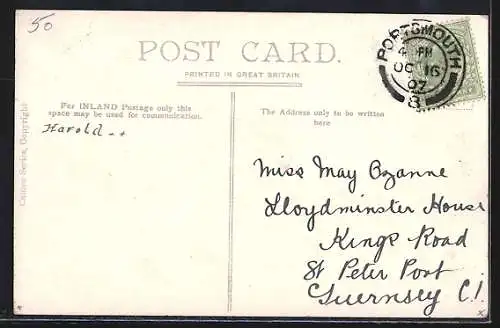 50
POST CARD.
PRINTED IN GREAT BRITAIN
PORTSMOUTH
4 PM
OC 16
07
8
For INLAND Postage only this
space may be used for communication.
The Address only to be written
here
Harold ..
Series, Copyright
Miss May Ozanne
Lloydminster House
Kings Road
St Peter Port
Guernsey C.I.